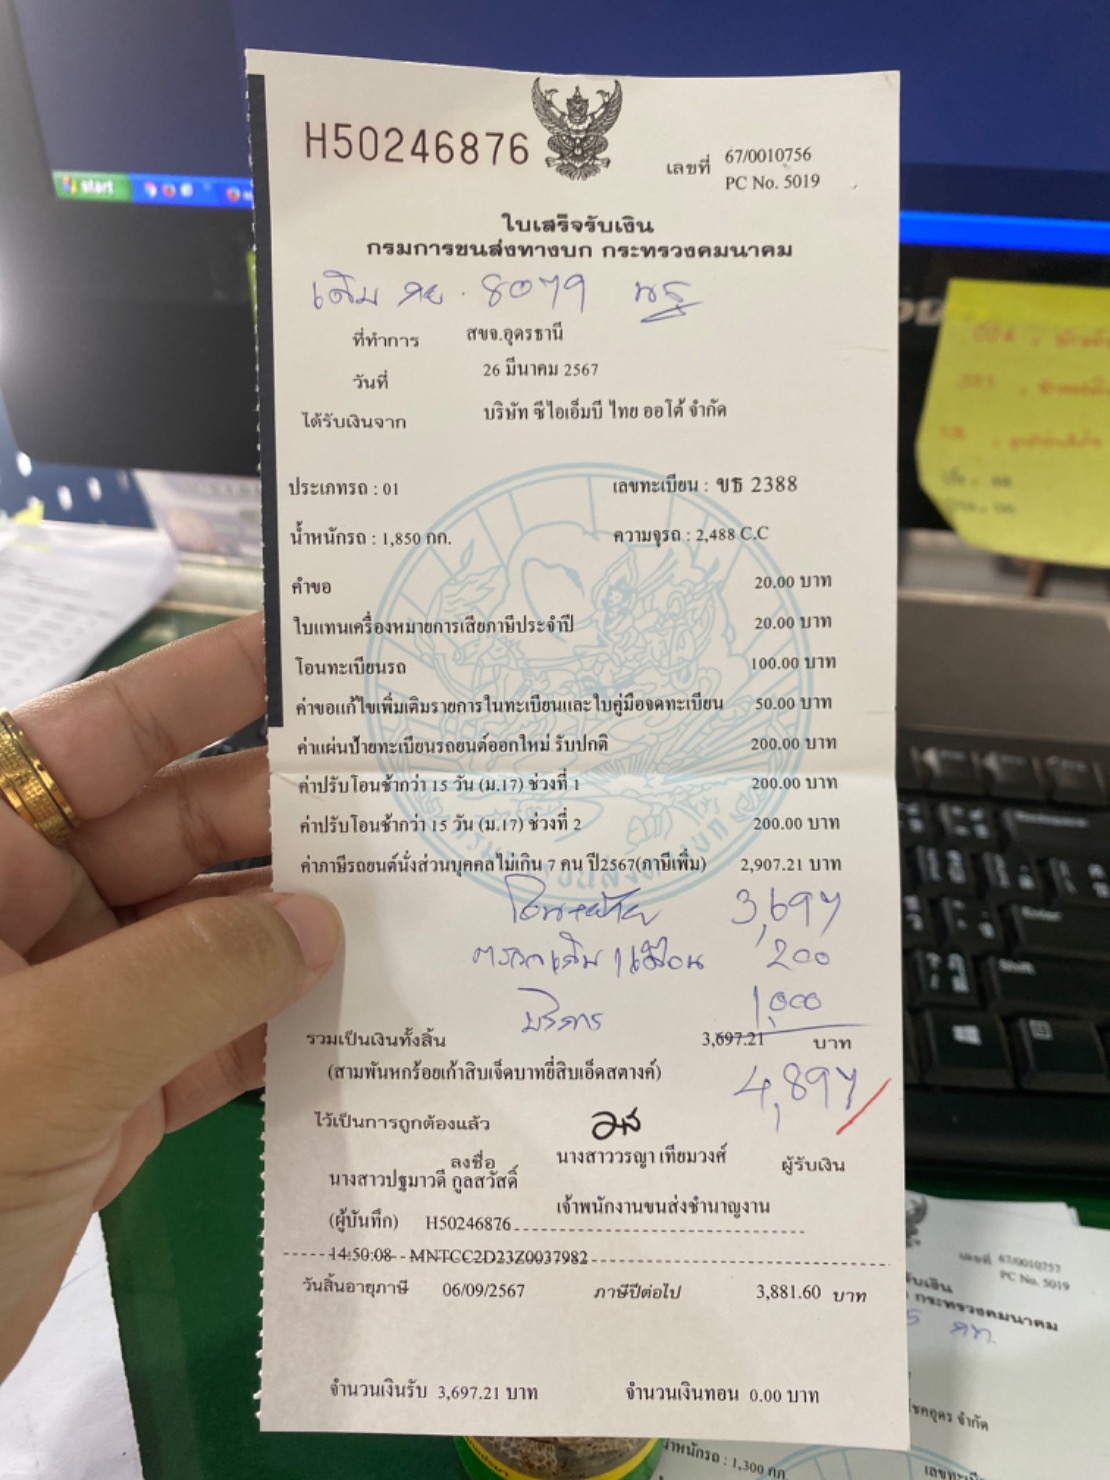 start
H50246876
เลขที่ 67/0010756
PC No. 5019
ใบเสร็จรับเงิน
กรมการขนส่งทางบก กระทรวงคมนาคม
เดิม กย. 8079 นฐ
ที่ทำการ สขจ.อุดรธานี
วันที่ 26 มีนาคม 2567
ได้รับเงินจาก บริษัท ซีไอเอ็มบี ไทย ออโต้ จำกัด
ประเภทรถ : 01 เลขทะเบียน : ขธ 2388
น้ำหนักรถ : 1,850 กก. ความจุรถ : 2,488 C.C
คำขอ 20.00 บาท
ใบแทนเครื่องหมายการเสียภาษีประจำปี 20.00 บาท
โอนทะเบียนรถ 100.00 บาท
ค่าขอแก้ไขเพิ่มเติมรายการในทะเบียนและใบคู่มือจดทะเบียน 50.00 บาท
ค่าแผ่นป้ายทะเบียนรถยนต์ออกใหม่ รับปกติ 200.00 บาท
ค่าปรับโอนช้ากว่า 15 วัน (ม.17) ช่วงที่ 1 200.00 บาท
ค่าปรับโอนช้ากว่า 15 วัน (ม.17) ช่วงที่ 2 200.00 บาท
ค่าภาษีรถยนต์นั่งส่วนบุคคลไม่เกิน 7 คน ปี2567(ภาษีเพิ่ม) 2,907.21 บาท
โอน+ย้าย 3,697
ตรอกเดิม 1 เดือน 200
บริการ 1,000
รวมเป็นเงินทั้งสิ้น 3,697.21 บาท
(สามพันหกร้อยเก้าสิบเจ็ดบาทยี่สิบเอ็ดสตางค์) 4,897
ไว้เป็นการถูกต้องแล้ว
ลงชื่อ นางสาววรญา เทียมวงศ์ ผู้รับเงิน
นางสาวปฐมาวดี กูลสวัสดิ์
เจ้าพนักงานขนส่งชำนาญงาน
(ผู้บันทึก) H50246876
14:50:08 MNTCC2D23Z0037982
วันสิ้นอายุภาษี 06/09/2567 ภาษีปีต่อไป 3,881.60 บาท
จำนวนเงินรับ 3,697.21 บาท จำนวนเงินทอน 0.00 บาท
เลขที่ 67/0010757
PC No. 5019
น้ำหนักรถ : 1,300 กก.